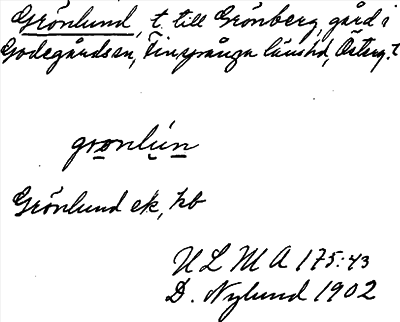 Grönlund, t. till Grönberg, gård i
Godegårds sn, Finspånga länshd, Österg. l
grönlún
Grönlund ek, kb
ULMA 175:43
D. Nylund 1902